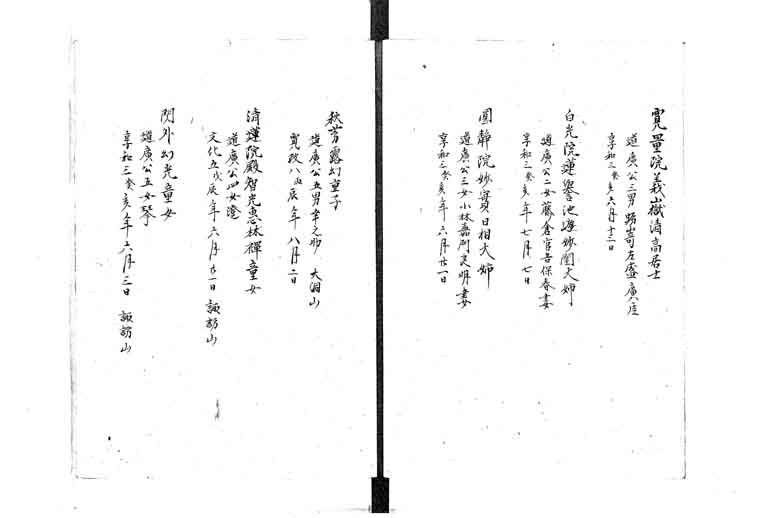 寛量院義山嶽清高居士
道廣公三男蠣崎左盛廣度
享和三癸亥六月十二日
白光院蓮譽池漣妙圓大姉
道廣公二女藤倉官吾保春妻
享和三癸亥年七月七日
圓静院妙實日相大姉
道廣公三女小林嘉門良明妻
享和三癸亥年六月廿一日
秋芳露幻童子
道廣公五男幸之助 大洞山
寛政八丙辰年八月二日
清蓮院殿智光惠林禪童女
道廣公四女澄
文化五戊辰年六月廿一日 諏訪山
閃外幻光童女
道廣公五女琴
享和三癸亥年六月三日 諏訪山